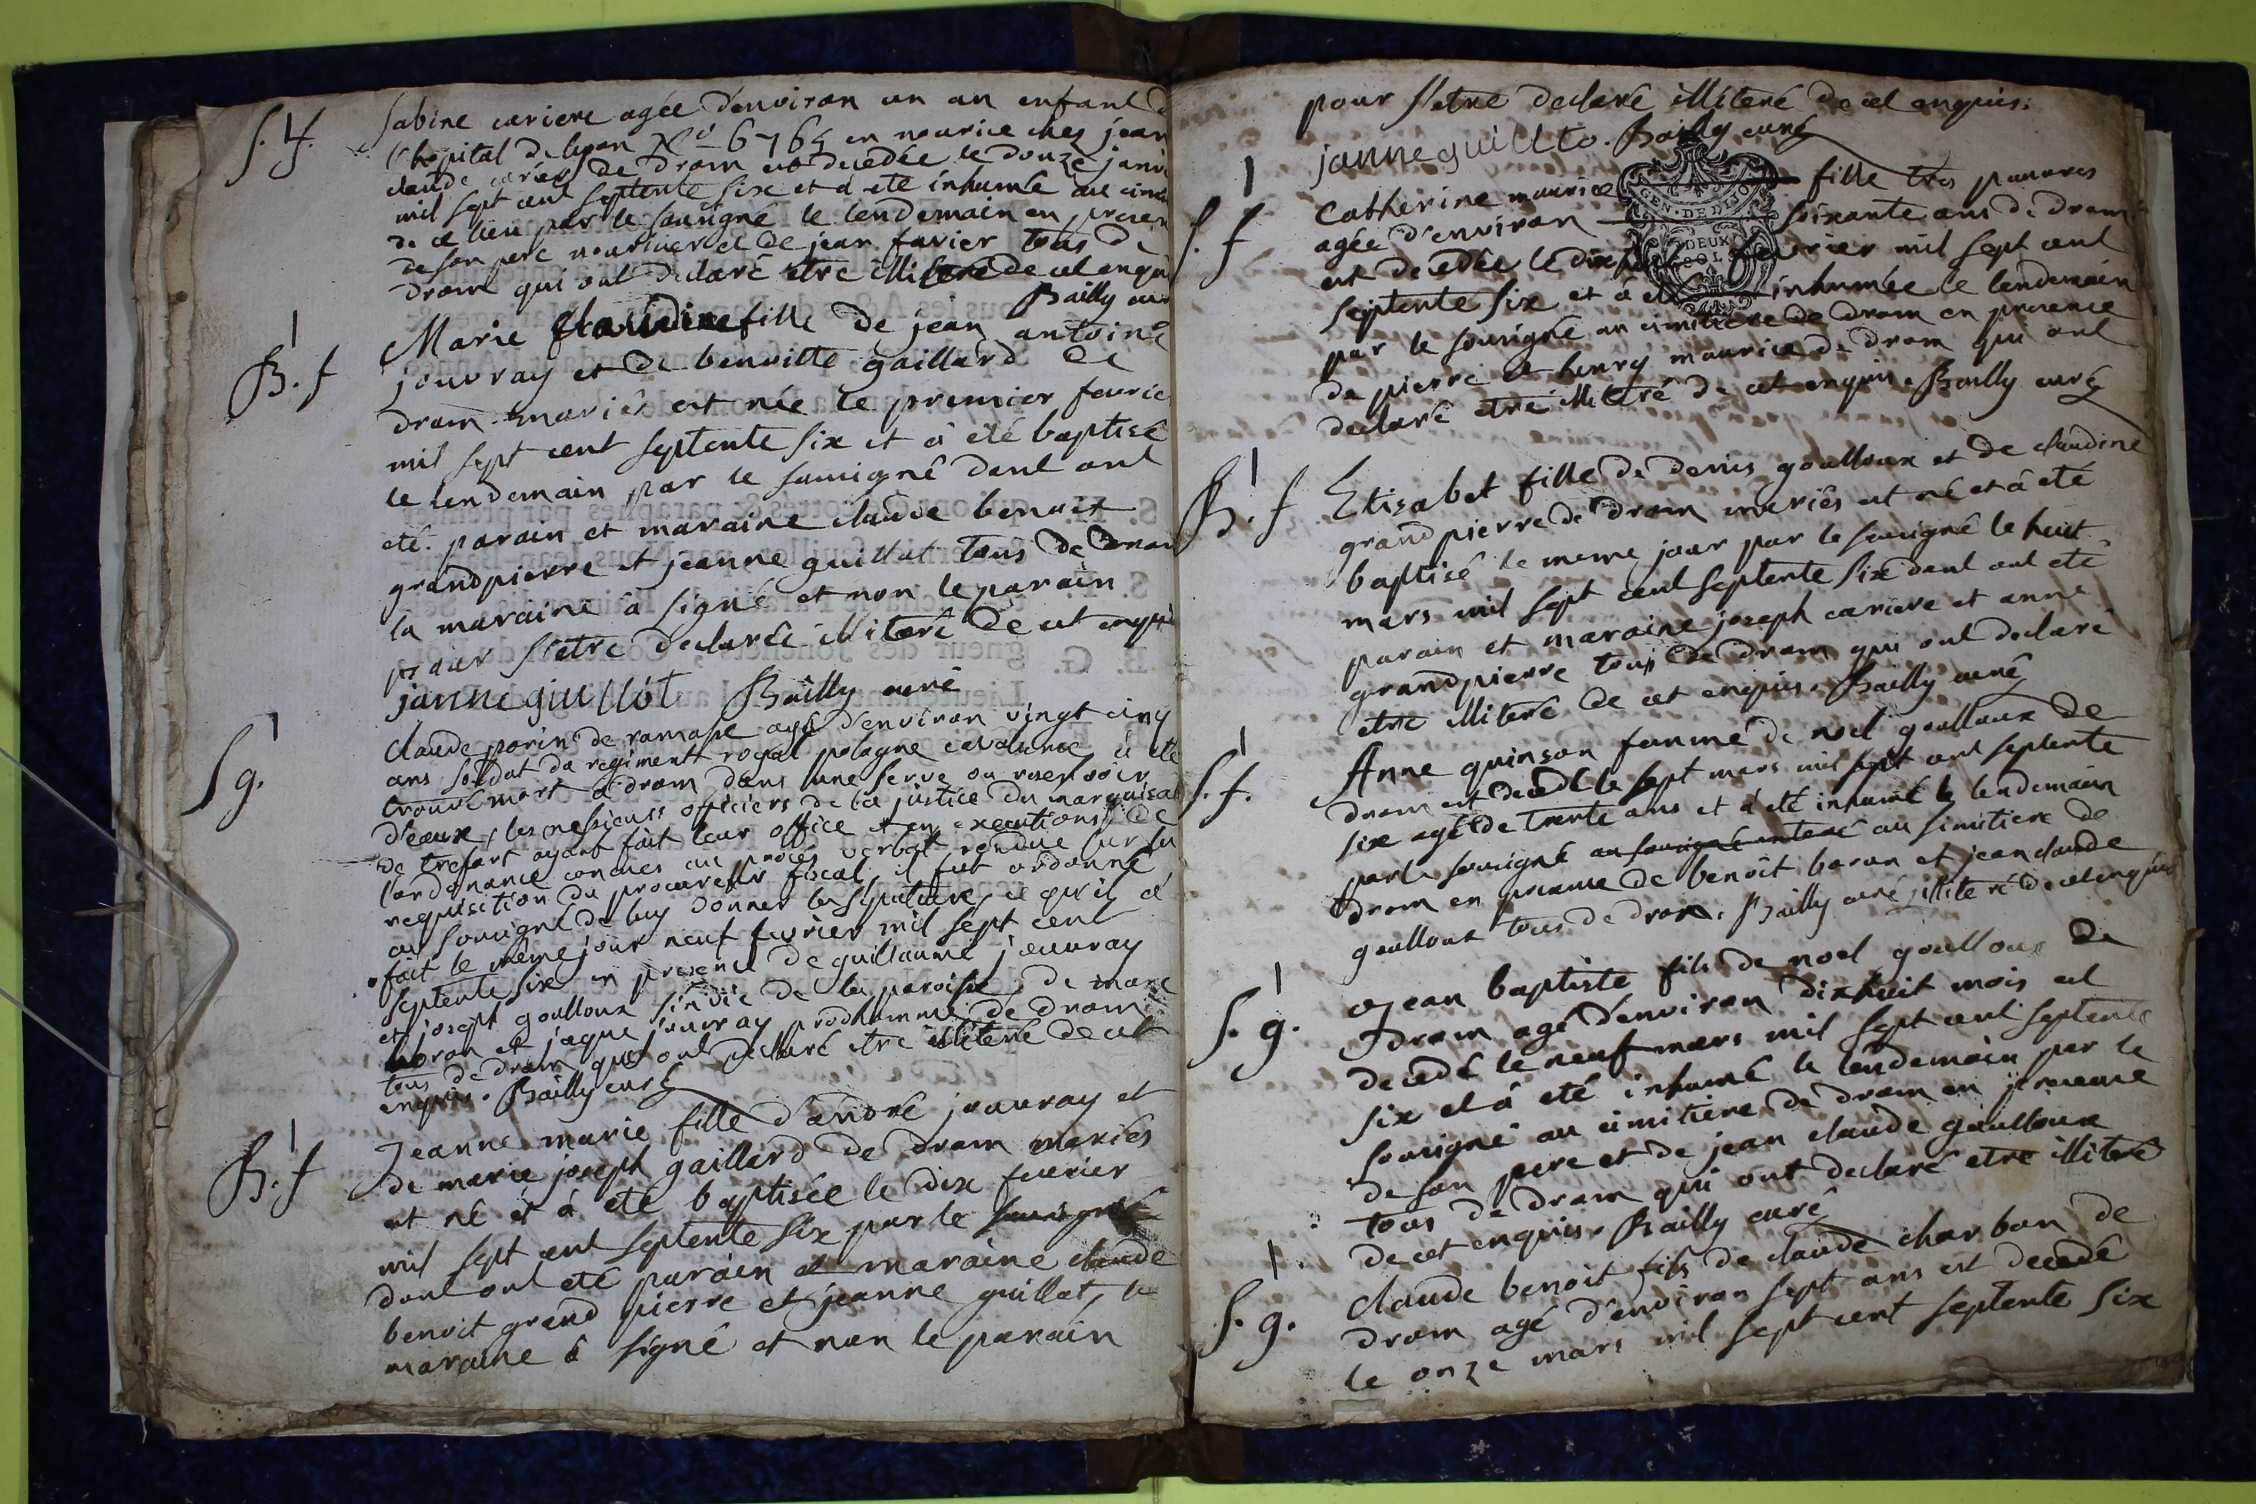 S. f.
Sabine cariere agée d'environ un an enfant d
l'hopital de lyon N° 6764 en nourice ches jean
claude cariere de drom est decedée le douze janvi
mil sept cent septente six et a eté inhumé au cime
de ce lieu par le sousigné le lendemain en presen
de son pere nouricier et de jean favier tous de
drom qui ont declaré etre illiteré de cet enqui
Bailly curé
1
B. f
Marie Claudine fille de jean antoine
jouvray et de benoitte gaillard de
drom mariés est née le premier fevrie
mil sept cent septente six et à été baptisé
le lendemain par le sousigné dont ont
eté parain et maraine claude benoit
grandpierre et jeanne guillot tous de drom
la maraine à signé et non le parain
pour s'etre declaré illiteré de cet enquis
janne guillot Bailly curé
1
S g.
claude parin de ramasse agé d'environ vingt cinq
ans soldat du regiment royal pologne cavalerie à eté
trouvé mort a drom dans une serve ou reservoir
d'eaux, les messieurs officiers de la justice du marquisat
de trefort ayant fait leur office et en execution de
l'ordonnance concues au procès verbal rendue sur la
requisition du procureur fiscal, il fut ordonné
au sousigné de luy donner la sepulture, ce qu'il à
fait le même jour neuf fevrier mil sept cent
septente six en presence de guillaume jouvray
et joseph goulloux sindic de la paroisse, de marc
boron et jaque jouvray prodhomme de drom
tous de drom qui ont declaré etre illiteré de cet
enquis. Bailly curé
1
B. f
Jeanne marie fille d'andré jouvray et
de marie joseph gaillard de drom mariés
est né et à eté baptisée le dix fevrier
mil sept cent septente six par le sousigné
dont ont eté parain et maraine claude
benoit grand pierre et jeanne guillot, la
maraine à signé et non le parain
pour s'etre declaré illiteré de cet enquis.
janne guillto. Bailly curé
GEN. DE DIJON
DEUX SOLS
1
S. f
Catherine maurice fille tres pauvres
agée d'environ soixante ans de drom
est decedée le dix fevrier mil sept cent
septente six et à eté inhumée le lendemain
par le sousigné au cimitiere de drom en presence
de pierre et henry maurice de drom qui ont
declaré etre illiteré de cet enquis. Bailly curé
1
B. f
Elisabet fille de denis goulloux et de claudine
grandpierre de drom mariés est né et à eté
baptisé le meme jour par le sousigné le huit
mars mil sept cent septente six dont ont eté
parain et maraine joseph cariere et anne
grandpierre tous de drom qui ont declaré
etre illiteré de cet enquis. Bailly curé
1
S. f.
Anne quinson famme de noel goulloux de
drom est decedé le sept mars mil sept cent septente
six agé de trente ans et à eté inhumé le lendemain
par le sousigné au simitiere de
drom en presence de benoit boron et jean claude
goulloux tous de drom. Bailly curé illiteré de cet enquis
1
S. g.
Jean baptiste fils de noel goulloux de
drom agé d'environ dixhuit mois est
decedé le neuf mars mil sept cent septente
six et à eté inhumé le lendemain par le
sousigné au cimitiere de drom en presence
de son pere et de jean claude goulloux
tous de drom qui ont declaré etre illiteré
de cet enquis. Bailly curé
1
S. g.
claude benoit fils de claude charbon de
drom agé d'environ sept ans est decedé
le onze mars mil sept cent septente six